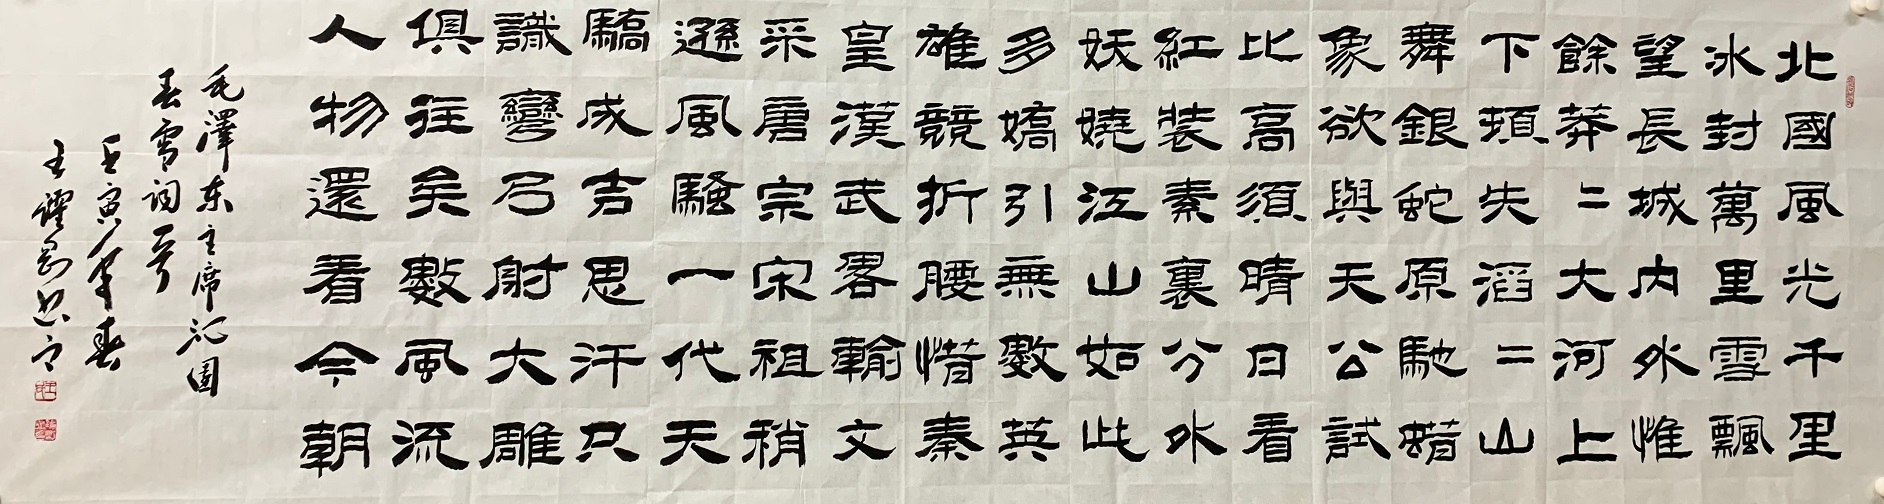 北國風光千里
冰封萬里雪飄
望長城内外惟
餘莽〻大河上
下頓失滔〻山
舞銀蛇原馳蜡
象欲與天公試
比高須晴日看
紅裝素裹分外
妖嬈江山如此
多嬌引無數英
雄競折腰惜秦
皇漢武畧輸文
采唐宗宋祖稍
遜風騷一代天
驕成吉思汗只
識彎弓射大雕
俱往矣數風流
人物還看今朝
毛澤东主席沁園
春雪词一首
壬寅年春
王